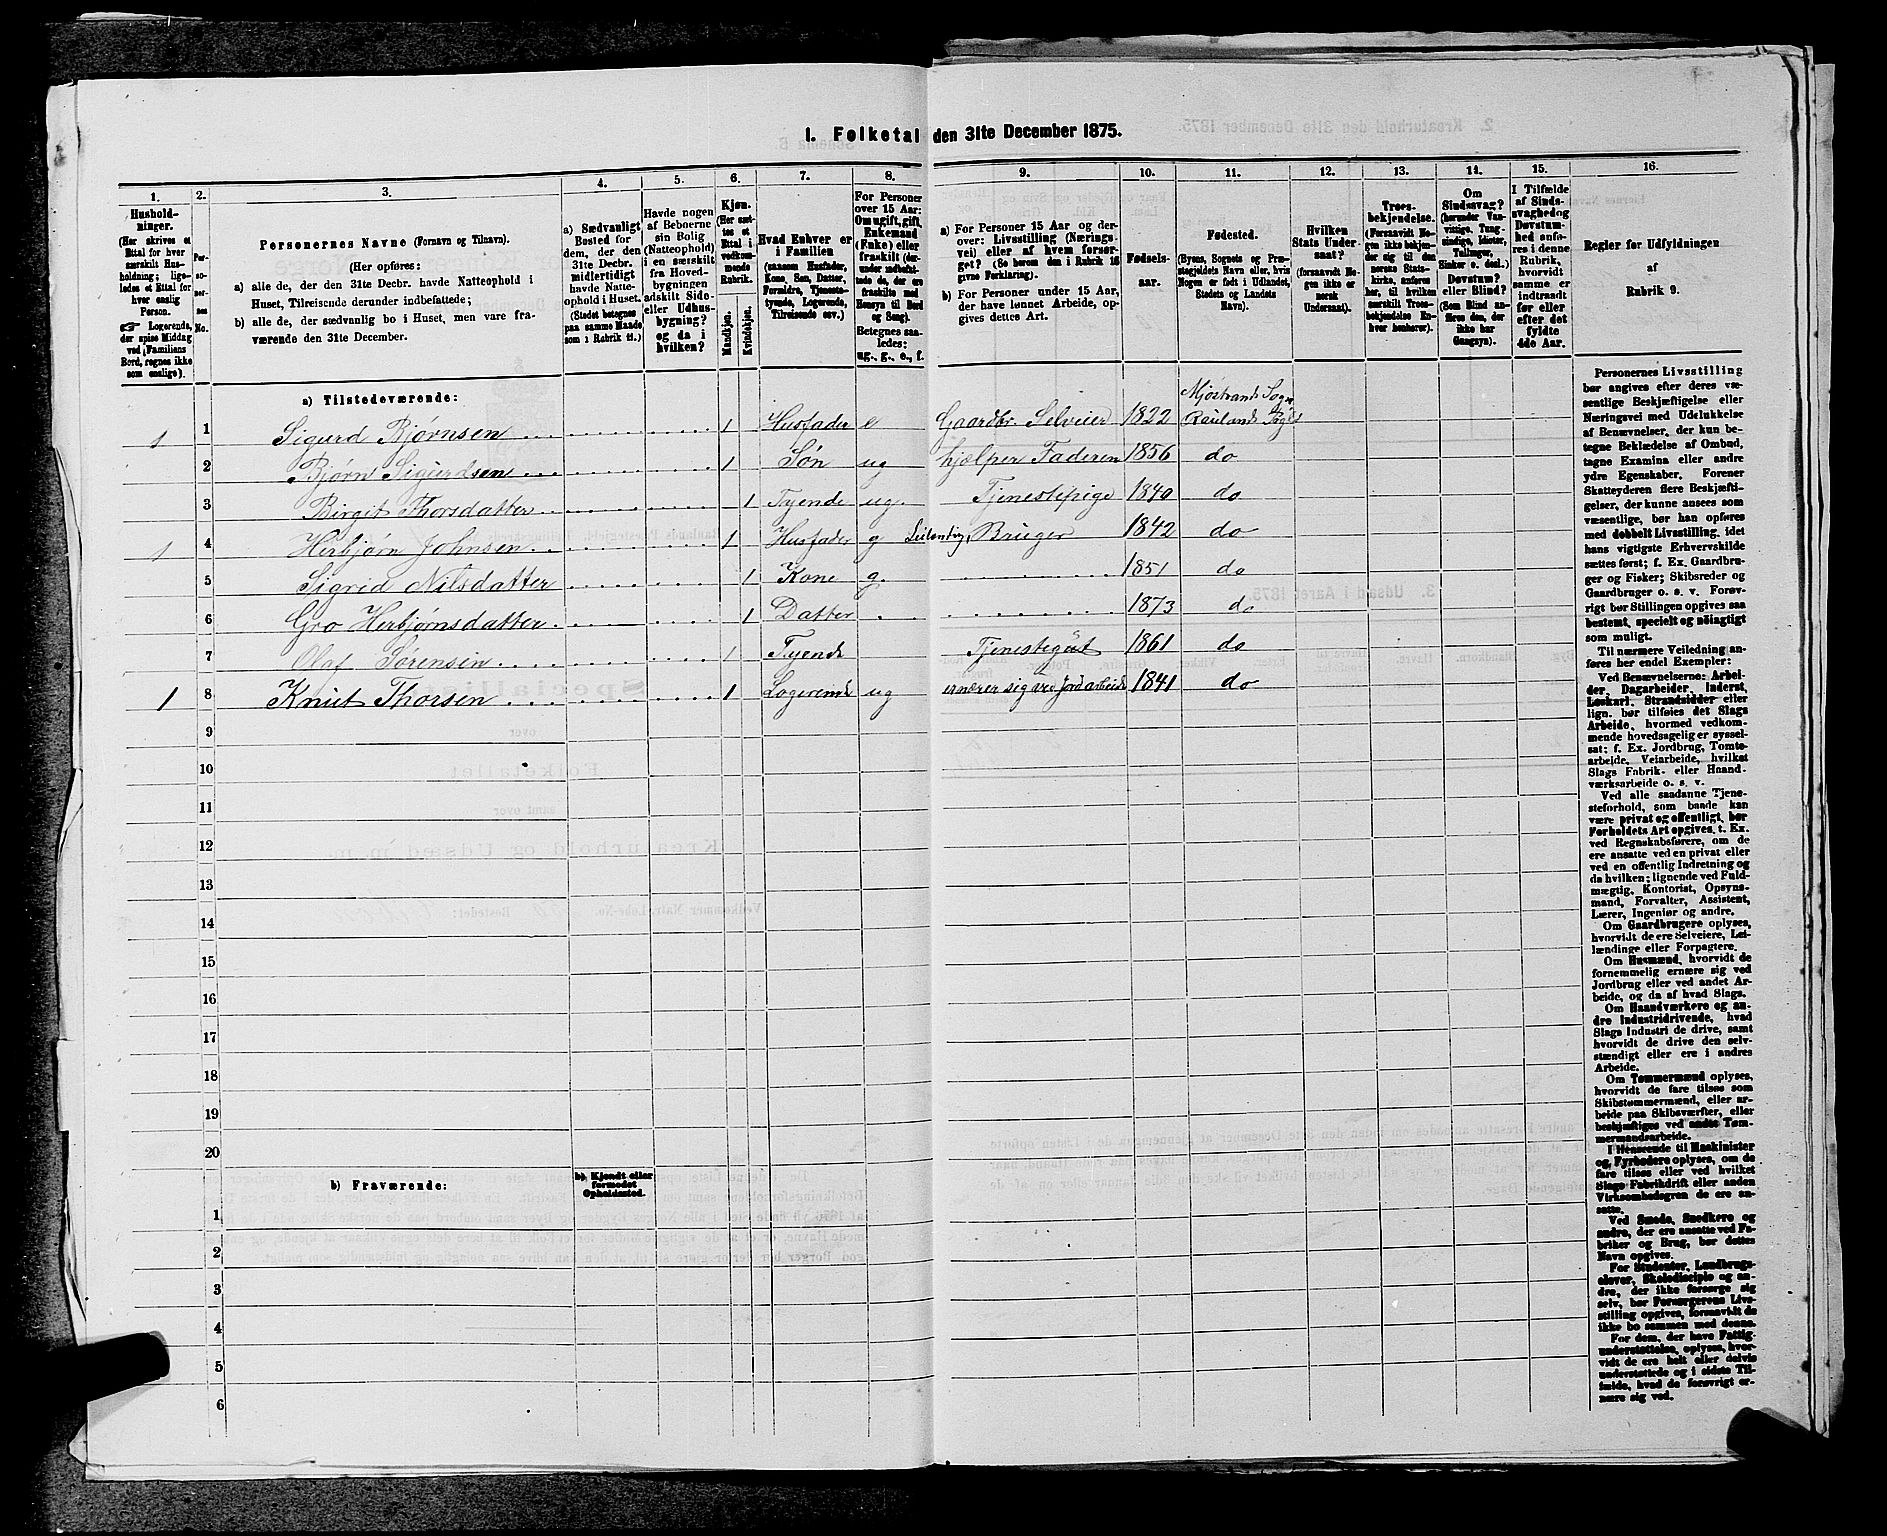 1. Folketal den 31te December 1875.
1.
2.
3.
4.
5.
6.
7.
8.
9.
10.
11.
12.
13.
14.
15.
16.
Hushold-
ninger.
(Her skrives et
Ettal for hver
særskilt Hus-
holdning; lige-
ledes et Ettal for
hver enslig
Person.
☞ Logerende,
der spise Middag
ved Familiens
Bord, regnes ikke
som enslige).
Per-
so-
ner-
nes
No.
Personernes Navne (Fornavn og Tilnavn).
(Her opføres:
a) alle de, der den 31te Decbr. havde Natteophold i
Huset, Tilreisende derunder indbefattede;
b) alle de, der sædvanlig bo i Huset, men vare fra-
værende den 31te December.
a) Sædvanligt
Bosted for
dem, der den
31te Decbr.
midlertidigt
havde Natte-
ophold i Huset.
(Stedet betegnes
paa samme Maade
som i Rubrik 11.)
Havde nogen
af Beboerne
sin Bolig
(Natteophold)
i en særskilt
fra Hoved-
bygningen
adskilt Side-
eller Udhus-
bygning?
og da i
hvilken?
Kjøn.
(Her sæt-
tes et
Ettal i
vedkom-
mende
Rubrik.
Mandkjøn.
Kvindekjøn.
Hvad Enhver er
i Familien
(saasom Husfader,
Kone, Søn, Datter,
Forældre, Tjeneste-
tyende, Logerende,
Tilreisende osv.)
For Personer
over 15 Aar:
Om ugift, gift,
Enkemand
(Enke) eller
fraskilt (der-
under indbefat-
tede de, der ere
fraskilte med
Hensyn til Bord
og Seng).
Betegnes saa-
ledes:
ug., g., e., f.
a) For Personer 15 Aar og der-
over: Livsstilling (Nærings-
vei) eller af hvem forsør-
get? (Se herom den i Rubrik 16
givne Forklaring).
b) For Personer under 15 Aar,
der have lønnet Arbeide, op-
gives dettes Art.
Fødsels-
aar.
Fødested.
(Byens, Sognets og Præ-
stegjeldets Navn eller, hvis
Nogen er født i Udlandet,
Stedets og Landets
Navn).
Hvilken
Stats Under-
saat?
(forsaavidt No-
gen ikke er
norsk
Undersaat).
Troes-
bekjendelse.
(Forsaavidt No-
gen ikke bekjen-
der sig til den
norske Stats-
kirke, anføres
her, til hvilken
særskilt Troes-
bekjendelse En-
hver henhører).
Om
Sindssvag?
(herunder Van-
vittige, Tung-
sindige, Idioter,
Tullinger,
Sinker o. desl.)
Døvstum?
eller Blind?
(Som Blind an-
føres den, der
ikke har
Gangsyn).
I Tilfælde
af Sinds-
svaghed og
Døvstum-
hed anfø-
res i denne
Rubrik,
hvorvidt
samme er
indtraadt
før eller
efter det
fyldte
4de Aar.
Regler for Udfyldningen
af
Rubrik 9.
a) Tilstedeværende:
Mjøstrands Sogn
1 1 Sigurd Bjørnsen 1 Husfader e Gaardbr. Selveier 1822 Rauland Pgjd
2 Bjørn Sigurdsen 1 Søn ug hjælper Faderen 1856 do
3 Birgit Thorsdatter 1 Tyende ug. Tjenestepige 1840 do
1 4 Herbjørn Johnsen 1 Husfader g Bruger 1842 do
5 Sigrid Nilsdatter 1 Kone g. 1851 do
6 Gro Herbjørnsdatter 1 Datter 1873 do
7 Olaf Sørensen 1 Tyende Tjenestegut 1861 do
1 8 Knut Thorsen 1 Logerende ug ernærer sig ved Jordarbeide 1841 do
9
10
11
12
13
14
15
16
17
18
19
20
b) Fraværende:
b) Kjendt eller
formodet
Opholdssted.
1
2
3
4
5
6
Personernes Livsstilling
bør angives efter deres væ-
sentlige Beskjæftigelse eller
Næringsvei med Udelukkelse
af Benævnelser, der kun be-
tegne Beklædelse af Ombud,
tagne Examina eller andre
ydre Egenskaber. Forener
Skatteyderen flere Beskjæfti-
gelser, der kunne ansees som
væsentlige, bør han opføres
med dobbelt Livsstilling, idet
hans vigtigste Erhvervskilde
sættes først; f. Ex. Gaardbru-
ger og Fisker; Skibsreder og
Gaardbruger o. s. v. Forøv-
rigt bør Stillingen opgives saa
bestemt, specielt og nøiagtigt
som muligt.
Til nærmere Veiledning an-
føres her endel Exempler:
Ved Benævnelserne: Arbei-
der, Dagarbeider, Inderst,
Løskarl, Strandsidder eller
lign. bør tilføies det Slags
Arbeide, hvormed vedkom-
mende hovedsagelig er syssel-
sat; f. Ex. Jordbrug, Tomte-
arbeide, Veiarbeide, hvilket
Slags Fabrik- eller Haand-
værksarbeide o. s. v.
Ved alle saadanne Tjene-
steforhold, som baade kan
være privat og offentligt, bør
Forholdets Art opgives, t. Ex.
ved Regnskabsførere, om de
ere ansatte ved en privat eller
ved en offentlig Indretning og
da hvilken; lignende ved Fuld-
mægtig, Kontorist, Opsyns-
mand, Forvalter, Assistent,
Lærer, Ingeniør og andre.
Om Gaardbrugere oplyses,
hvorvidt de ere Selveiere, Lei-
lændinge eller Forpagtere.
Om Husmænd, hvorvidt de
fornemmelig ernære sig ved
Jordbrug eller ved andet Ar-
beide, og da af hvad Slags.
Om Haandværkere og an-
dre Industridrivende, hvad
Slags Industri de drive, samt
hvorvidt de drive den selv-
stændigt eller ere i andres
Arbeide.
Om Tømmermænd oplyses,
hvorvidt de fare tilsøs som
Skibstømmermænd, eller ar-
beide paa Skibsværfter, eller
beskjæftiges ved andet Tøm-
mermandsarbeide.
I Henseende til Maskinister
og Fyrbødere oplyses, om de
fare tilsøs eller ved hvilket
Slags Fabrikdrift eller anden
Virksomhedsgren de ere an-
satte.
Ved Smede, Snedkere og
andre, der ere ansatte ved Fa-
briker og Brug, bør dettes
Navn opgives.
For Studenter, Landbrugs-
elever, Skoledisciple og an-
dre, der ikke forsørge sig
selv, bør Forsørgerens Livs-
stilling opgives, forsaavidt de
ikke bo sammen med denne.
For dem, der have Fattig-
understøttelse, oplyses, hvor-
vidt de ere helt eller delvis
understøttede og i sidste Til-
fælde, hvad de forøvrigt er-
nære sig ved.